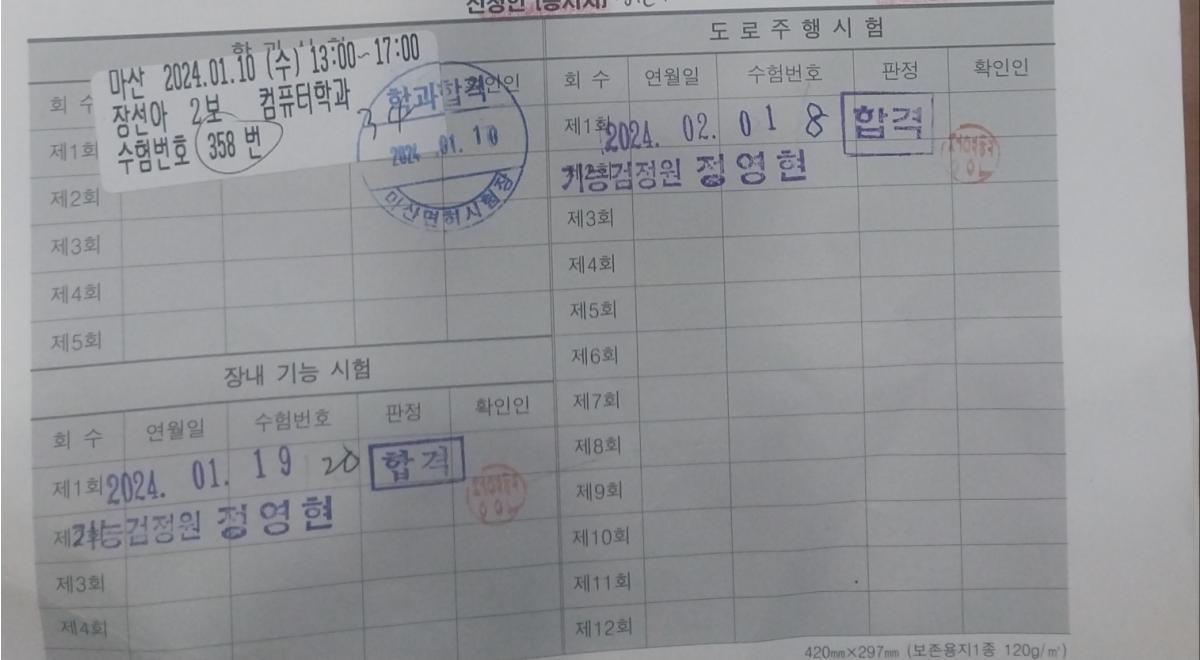 신청인 [응시자]
마산 2024.01.10 (수) 13:00~17:00
장선아 2보 컴퓨터학과
수험번호 358 번
회 수 확인인
학과합격
2024 .01. 10
마산면허시험장
제1회
제2회
제3회
제4회
제5회
장내 기능 시험
회 수 연월일 수험번호 판정 확인인
제1회 2024. 01. 19 20 합격
제2회 기능검정원 정영현
제3회
제4회
도로주행시험
회 수 연월일 수험번호 판정 확인인
제1회 2024. 02. 01 8 합격
제2회 기능검정원 정영현
제3회
제4회
제5회
제6회
제7회
제8회
제9회
제10회
제11회
제12회
420㎜×297㎜ (보존용지1종 120g/㎡)